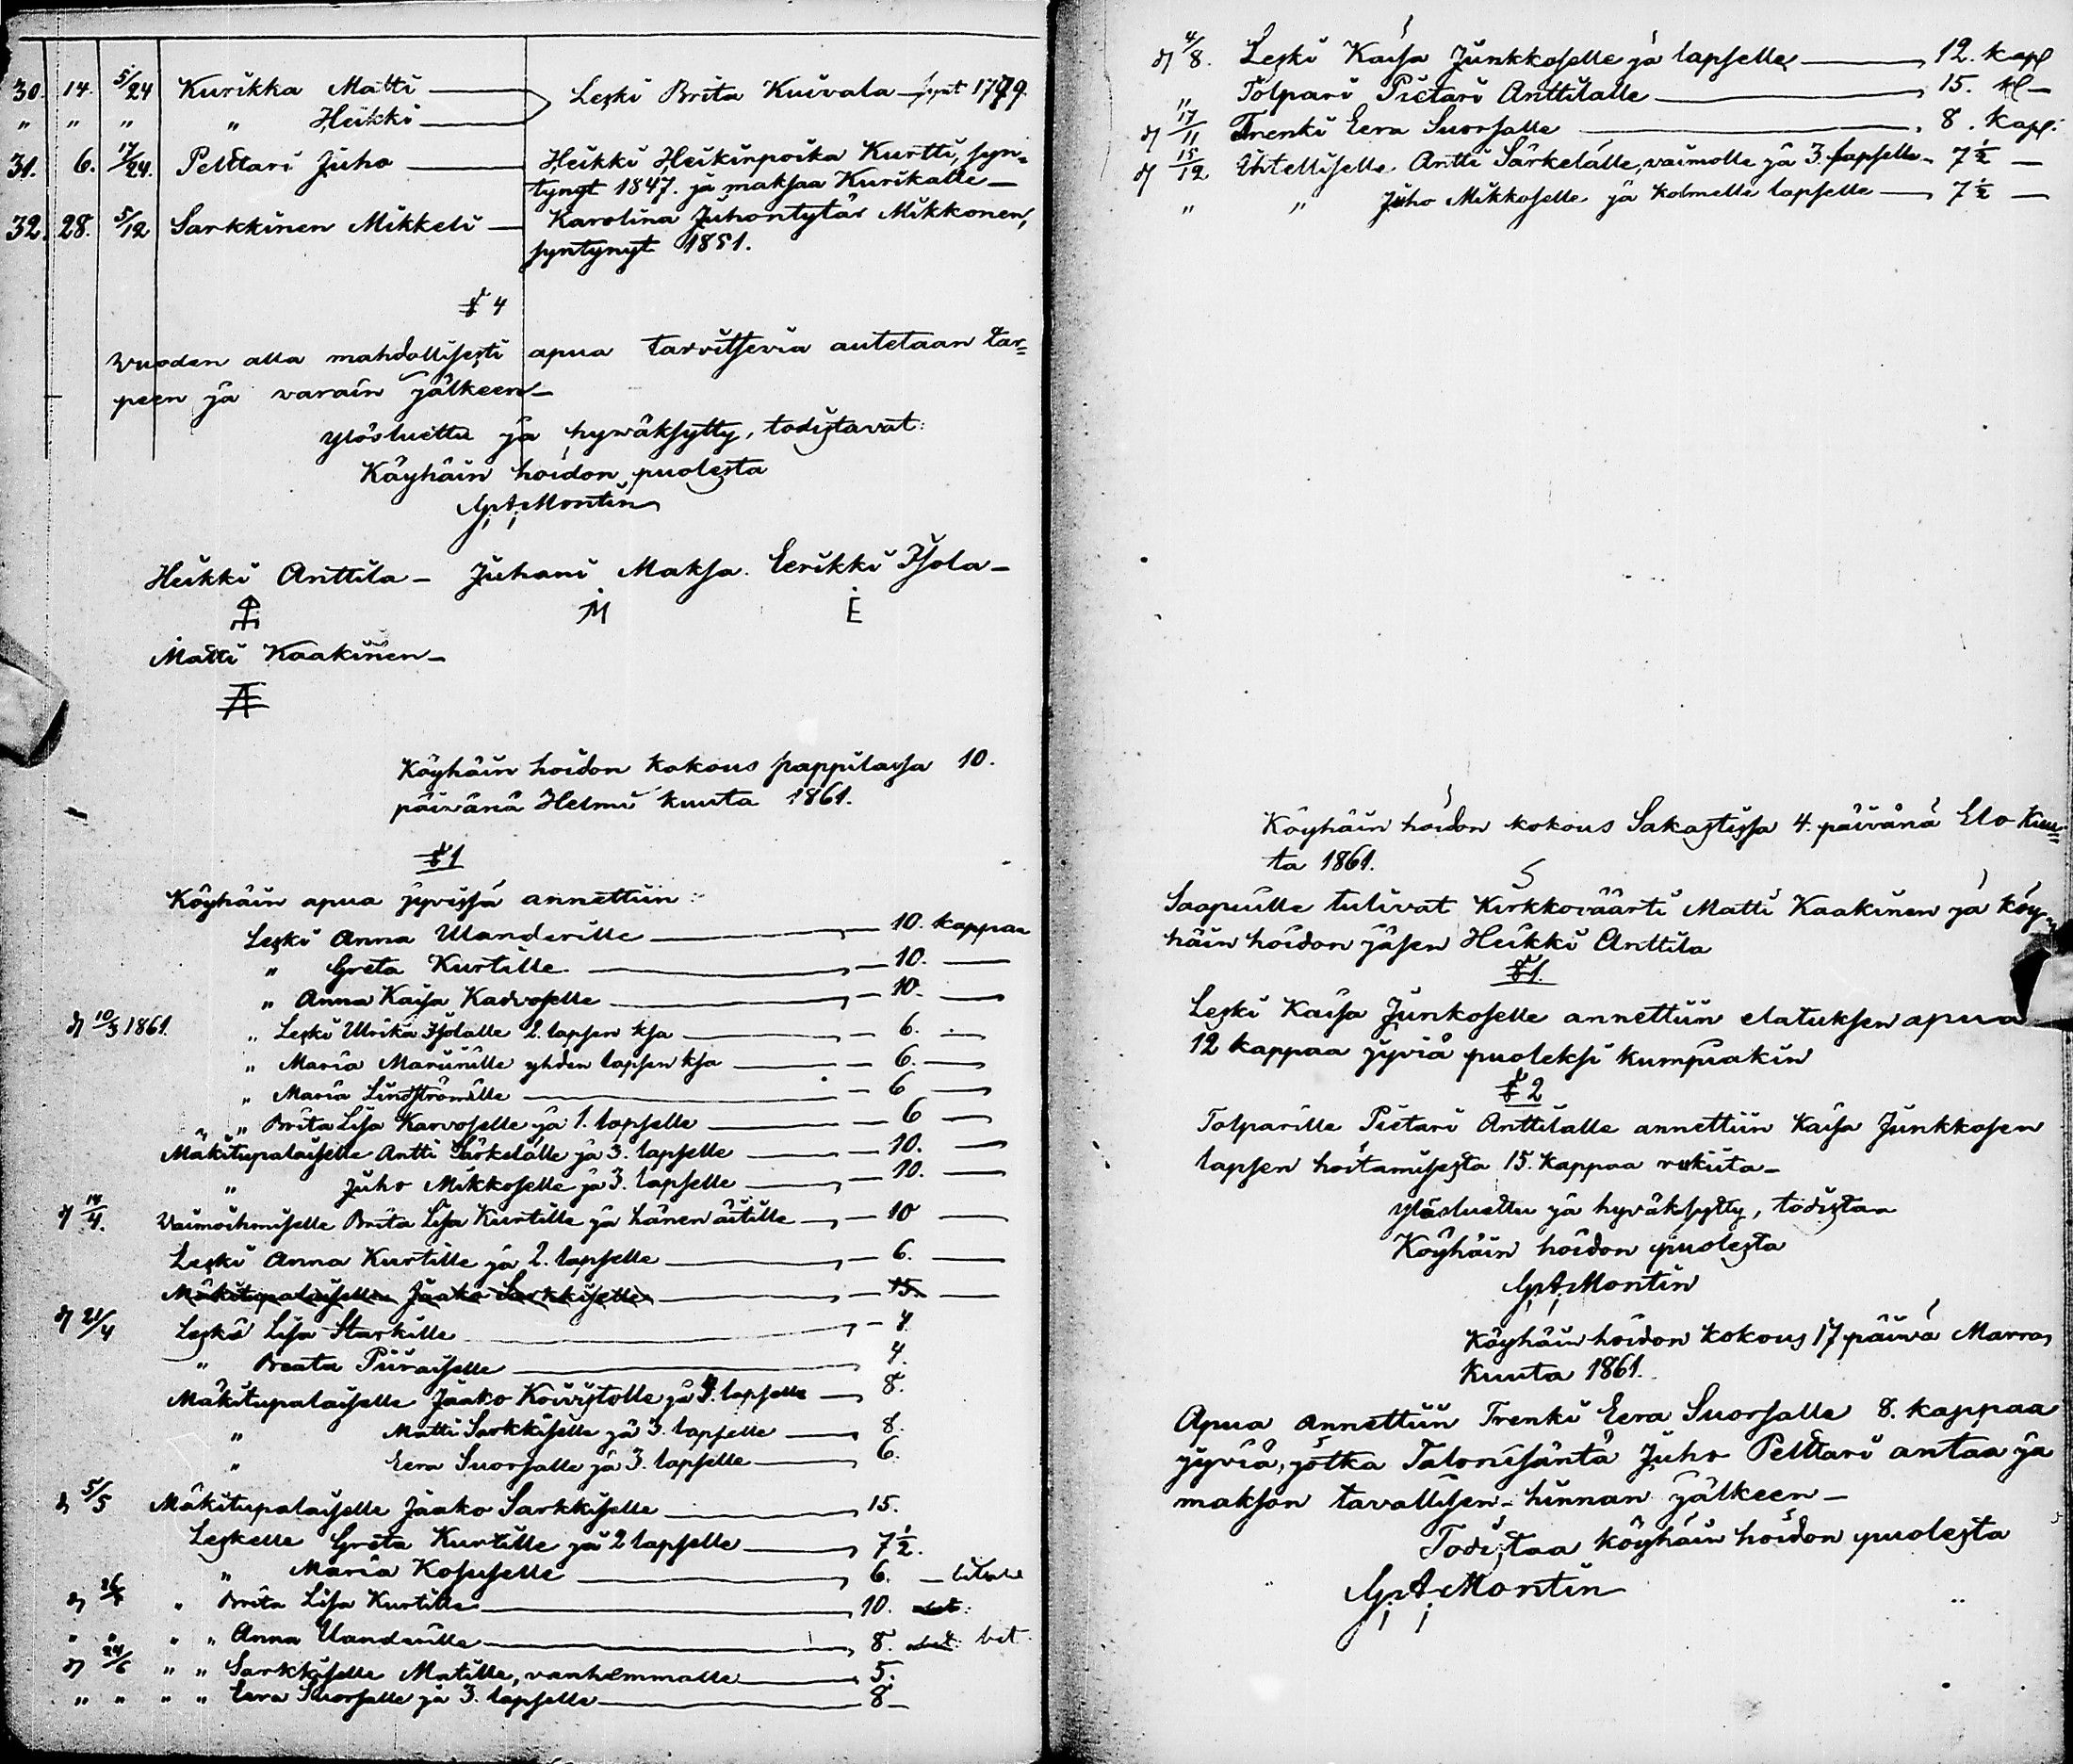 30. 14. 5/24 Kurikka Matti — Leski Brita Kuivala synt 1779.
" " " " Heikki —
31. 6. 17/24. Pelttari Juho — Heikki Heikinpoika Kurtti, syn-
tynyt 1847. ja maksaa Kurikalle —
32. 28. 5/12 Sarkkinen Mikkeli — Karolina Juhontytär Mikkonen,
syntynyt 1851.
§ 4
Wuoden alla mahdollisesti apua tarvitsevia autetaan tar-
peen ja varain jälkeen —
Ylösluettu ja hywäksytty, todistavat:
Käyhäin hoidon puolesta
G. A. Montin
Heikki Anttila — Juhani Maksa. Eerikki Isola —
M E
Matti Kaakinen —
Köyhäin hoidon kokous pappilassa 10.
päiwänä Helmi kuuta 1861.
§ 1
Köyhäin apua jyvissä annettiin:
Leski Anna Wanderille — 10. kappaa
" Greta Kurtille — 10. —
" Anna Kaisa Kadvoselle — 10. —
d 10/3 1861. " Leski Ulrika Isolalle 2. lapsen ksa — 6. —
" Maria Mariinille yhden lapsen ksa — 6. —
" Maria Lindströmille — 6 —
" " Brita Lisa Karvoselle ja 1. lapselle — 6 —
Mäkitupalaiselle Antti Särkelälle ja 3. lapselle — 10. —
" Juho Mikkoselle ja 3. lapselle — 10. —
d 14/4. Vaimoihmiselle Brita Lisa Kurtille ja hänen äitille — 10 —
Leski Anna Kurtille ja 2. lapselle — 6. —
Mäkitupalaiselle Jaako Sarkkiselle — 15 —
d 21/4 Leski Lisa Starkille — 4
" Beata Piiraiselle — 4.
Mäkitupalaiselle Jaako Koivistolle ja 4. lapselle — 8.
" Matti Sarkkiselle ja 3. lapselle — 8.
" Eera Suorsalle ja 3. lapselle — 6.
d 5/5 Mäkitupalaiselle Jaako Sarkkiselle — 15.
Leskelle Greta Kurtille ja 2 lapselle — 7 1/2.
" Maria Kososelle — 6. —
d " Brita Lisa Kurtille — 10.
" " " " Anna Wanderille — 8. bet.
d 24/6 " " Sarkkiselle Matille, vanhemmalle — 5.
" " " " Eera Suorsalle ja 3. lapselle — 8 —
d 4/8. Leski Kaisa Junkkoselle ja lapselle — 12. kapp
" Tolpari Pietari Anttilalle — 15. kl —
d 17/11 Trenki Eera Suorsalle — 8. kapp.
d 15/12 Ititelliselle Antti Särkelälle, vaimolle ja 3. lapselle — 7 1/2 —
" " Juho Mikkoselle ja kolmelle lapselle — 7 1/2 —
Köyhäin hoidon kokous Sakastissa 4. päivänä Elo Kuu-
ta 1861.
Saapuille tulivat Kirkkoväärti Matti Kaakinen ja köy-
häin hoidon jäsen Heikki Anttila
§ 1.
Leski Kaisa Junkoselle annettiin elatuksen apua
12 kappaa jyviä puoleksi kumpiakin
§ 2
Tolparille Pietari Anttilalle annettiin Kaisa Junkkosen
lapsen hoitamisesta 15. kappaa rukiita —
Ylösluettu ja hyväksytty, todistaa
Köyhäin hoidon puolesta
G. A. Montin
Köyhäin hoidon kokous 17 päivä Marras
Kuuta 1861.
Apua annettiin Trenki Eera Suorsalle 8. kappaa
jyviä, jotka Talonisäntä Juho Pelttari antaa ja
makson tavallisen hinnan jälkeen —
Todistaa köyhäin hoidon puolesta
G. A. Montin